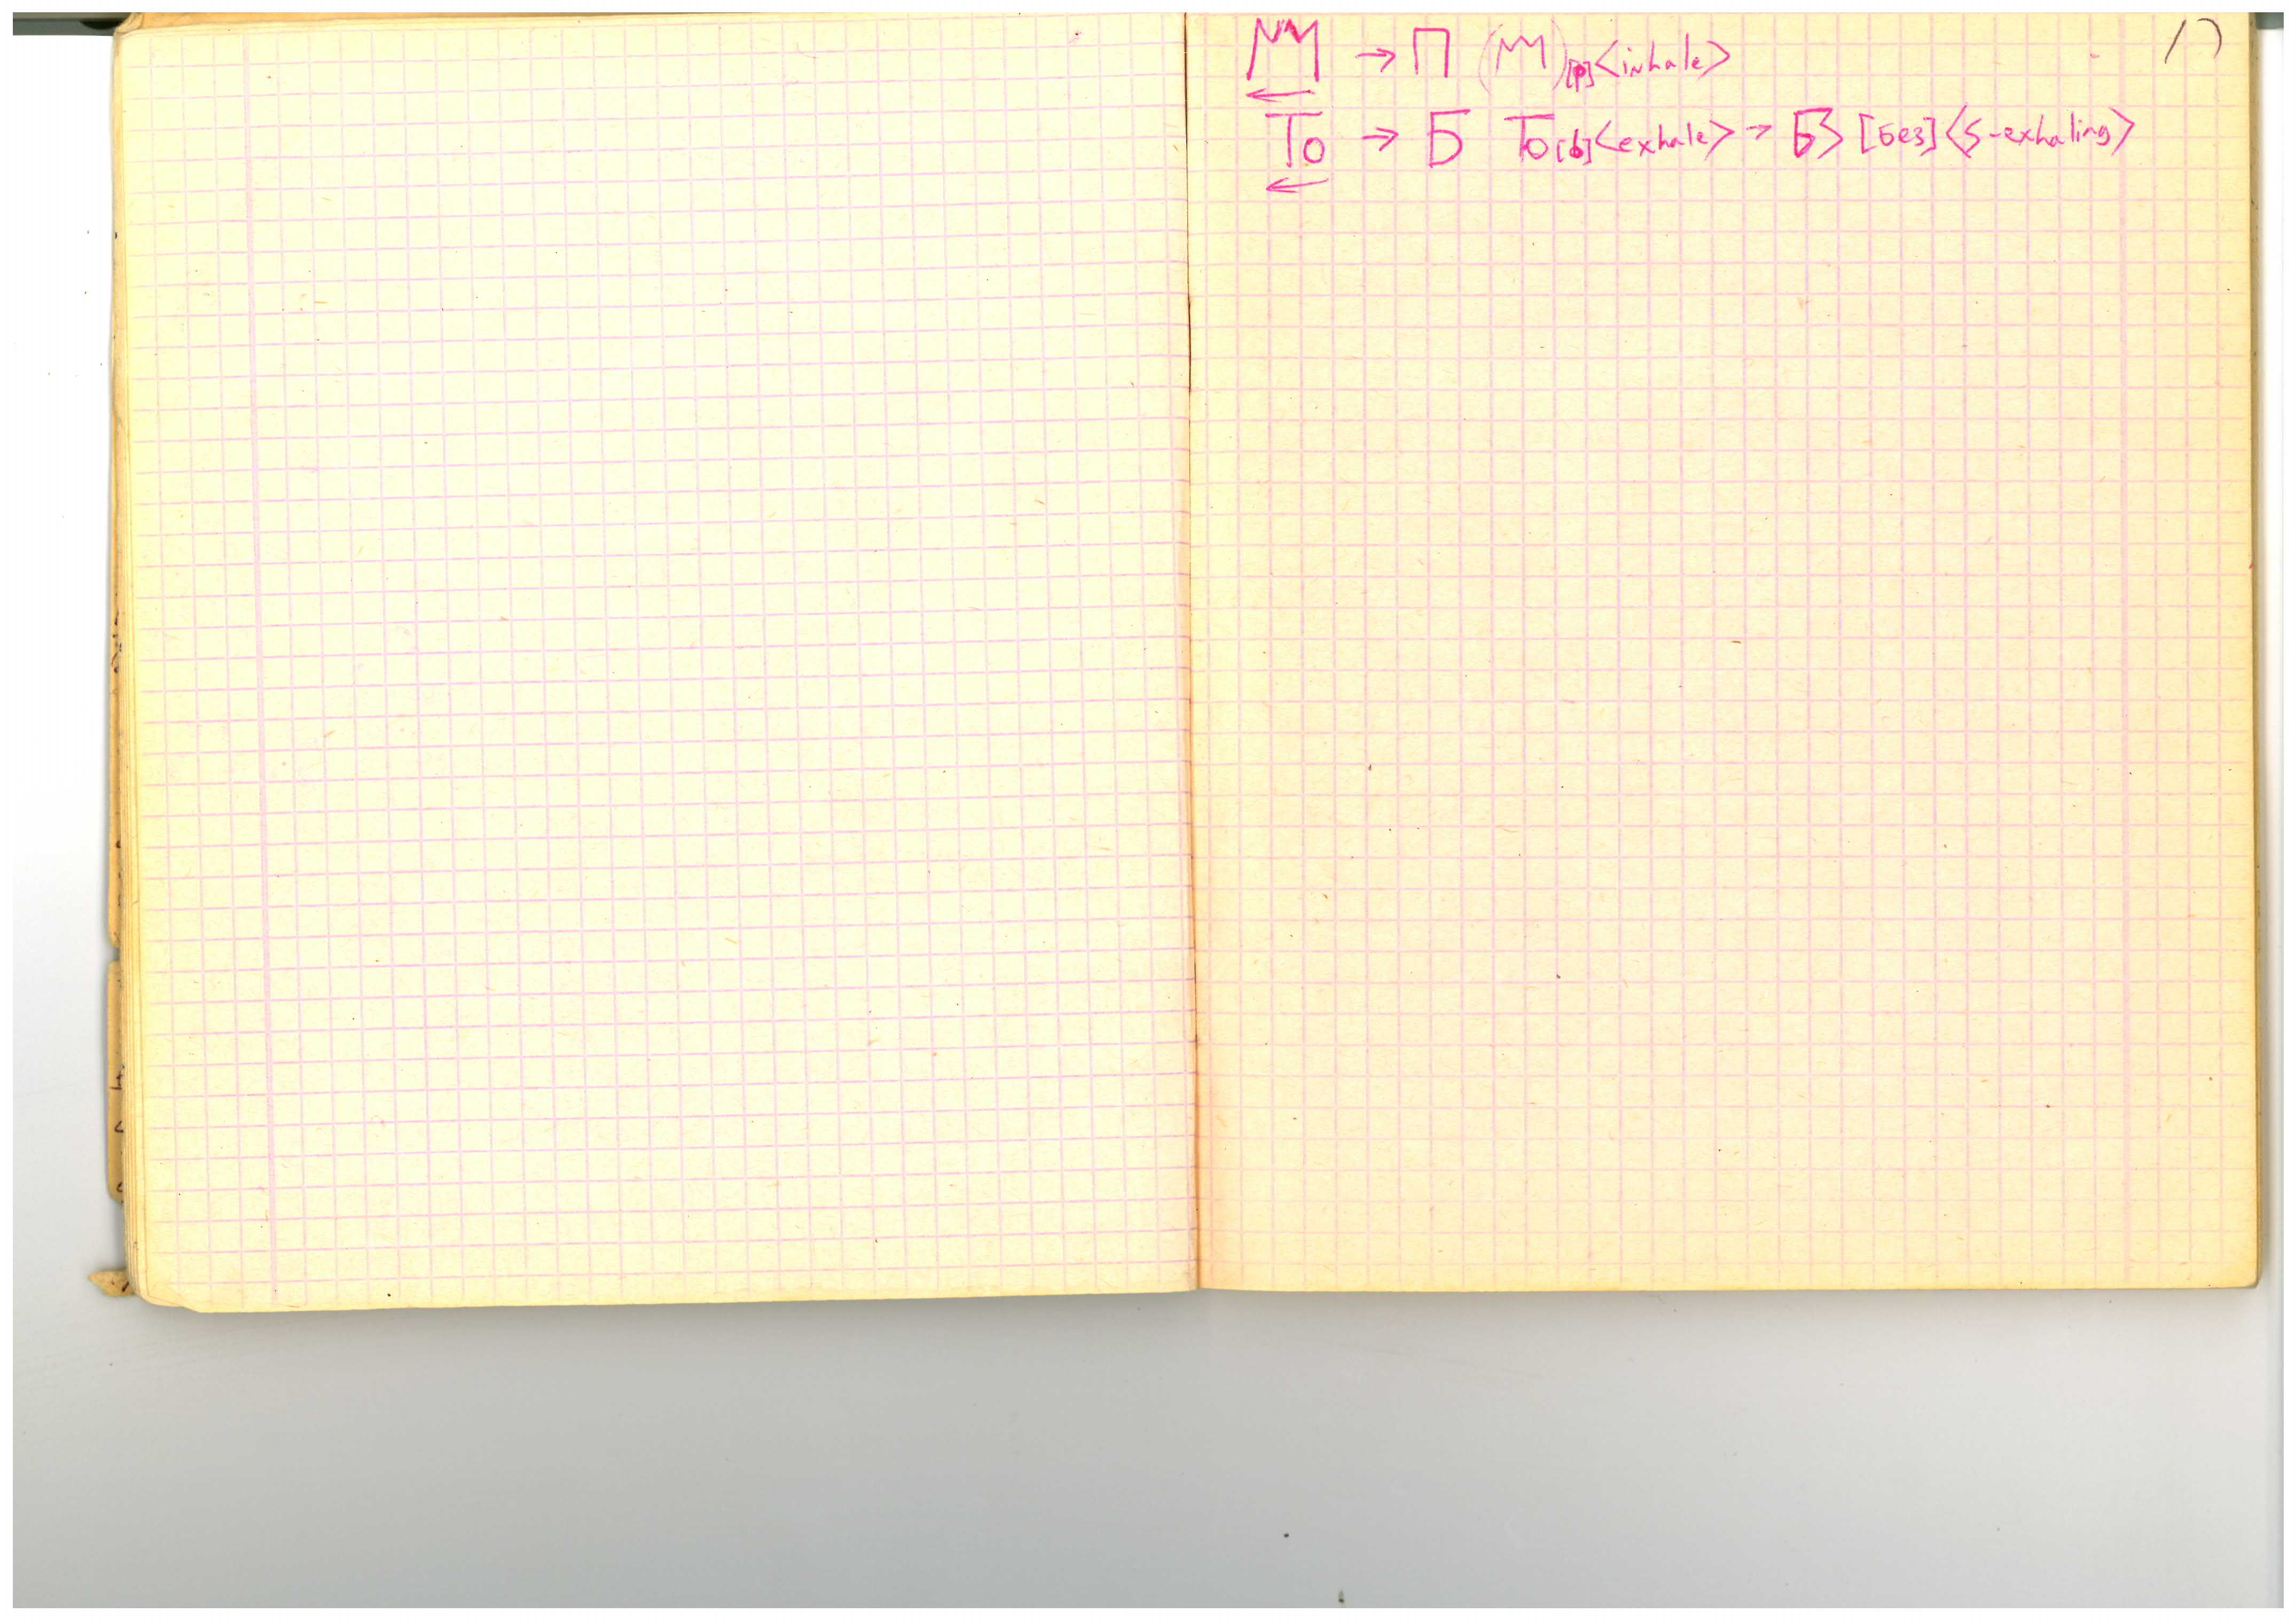 М → П (М)[p]<inhale>
То → Б То[b]<exhale> → БЗ [без]<s-exhaling>